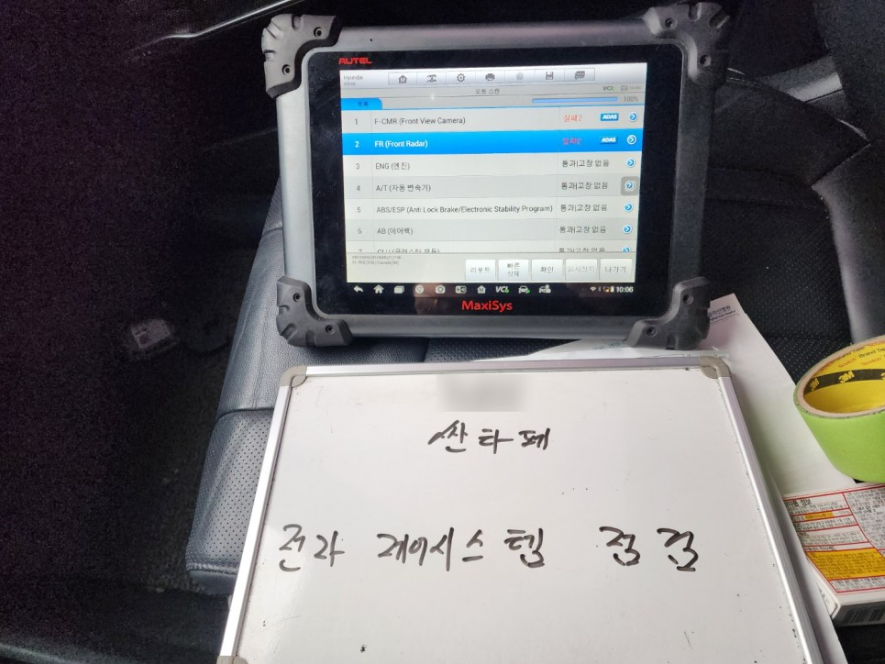 AUTEL
Hyundai
VCI
100%
1 F-CMR (Front View Camera) ADAS
2 FR (Front Radar) ADAS
3 ENG (엔진) 통과|고장 없음
4 A/T (자동 변속기) 통과|고장 없음
5 ABS/ESP (Anti Lock Brake/Electronic Stability Program) 통과|고장 없음
6 AB (에어백) 통과|고장 없음
리포트 빠른 삭제 확인 나가기
VCI 10:06
MaxiSys
3M
싼타페
전자 제어시스템 점검